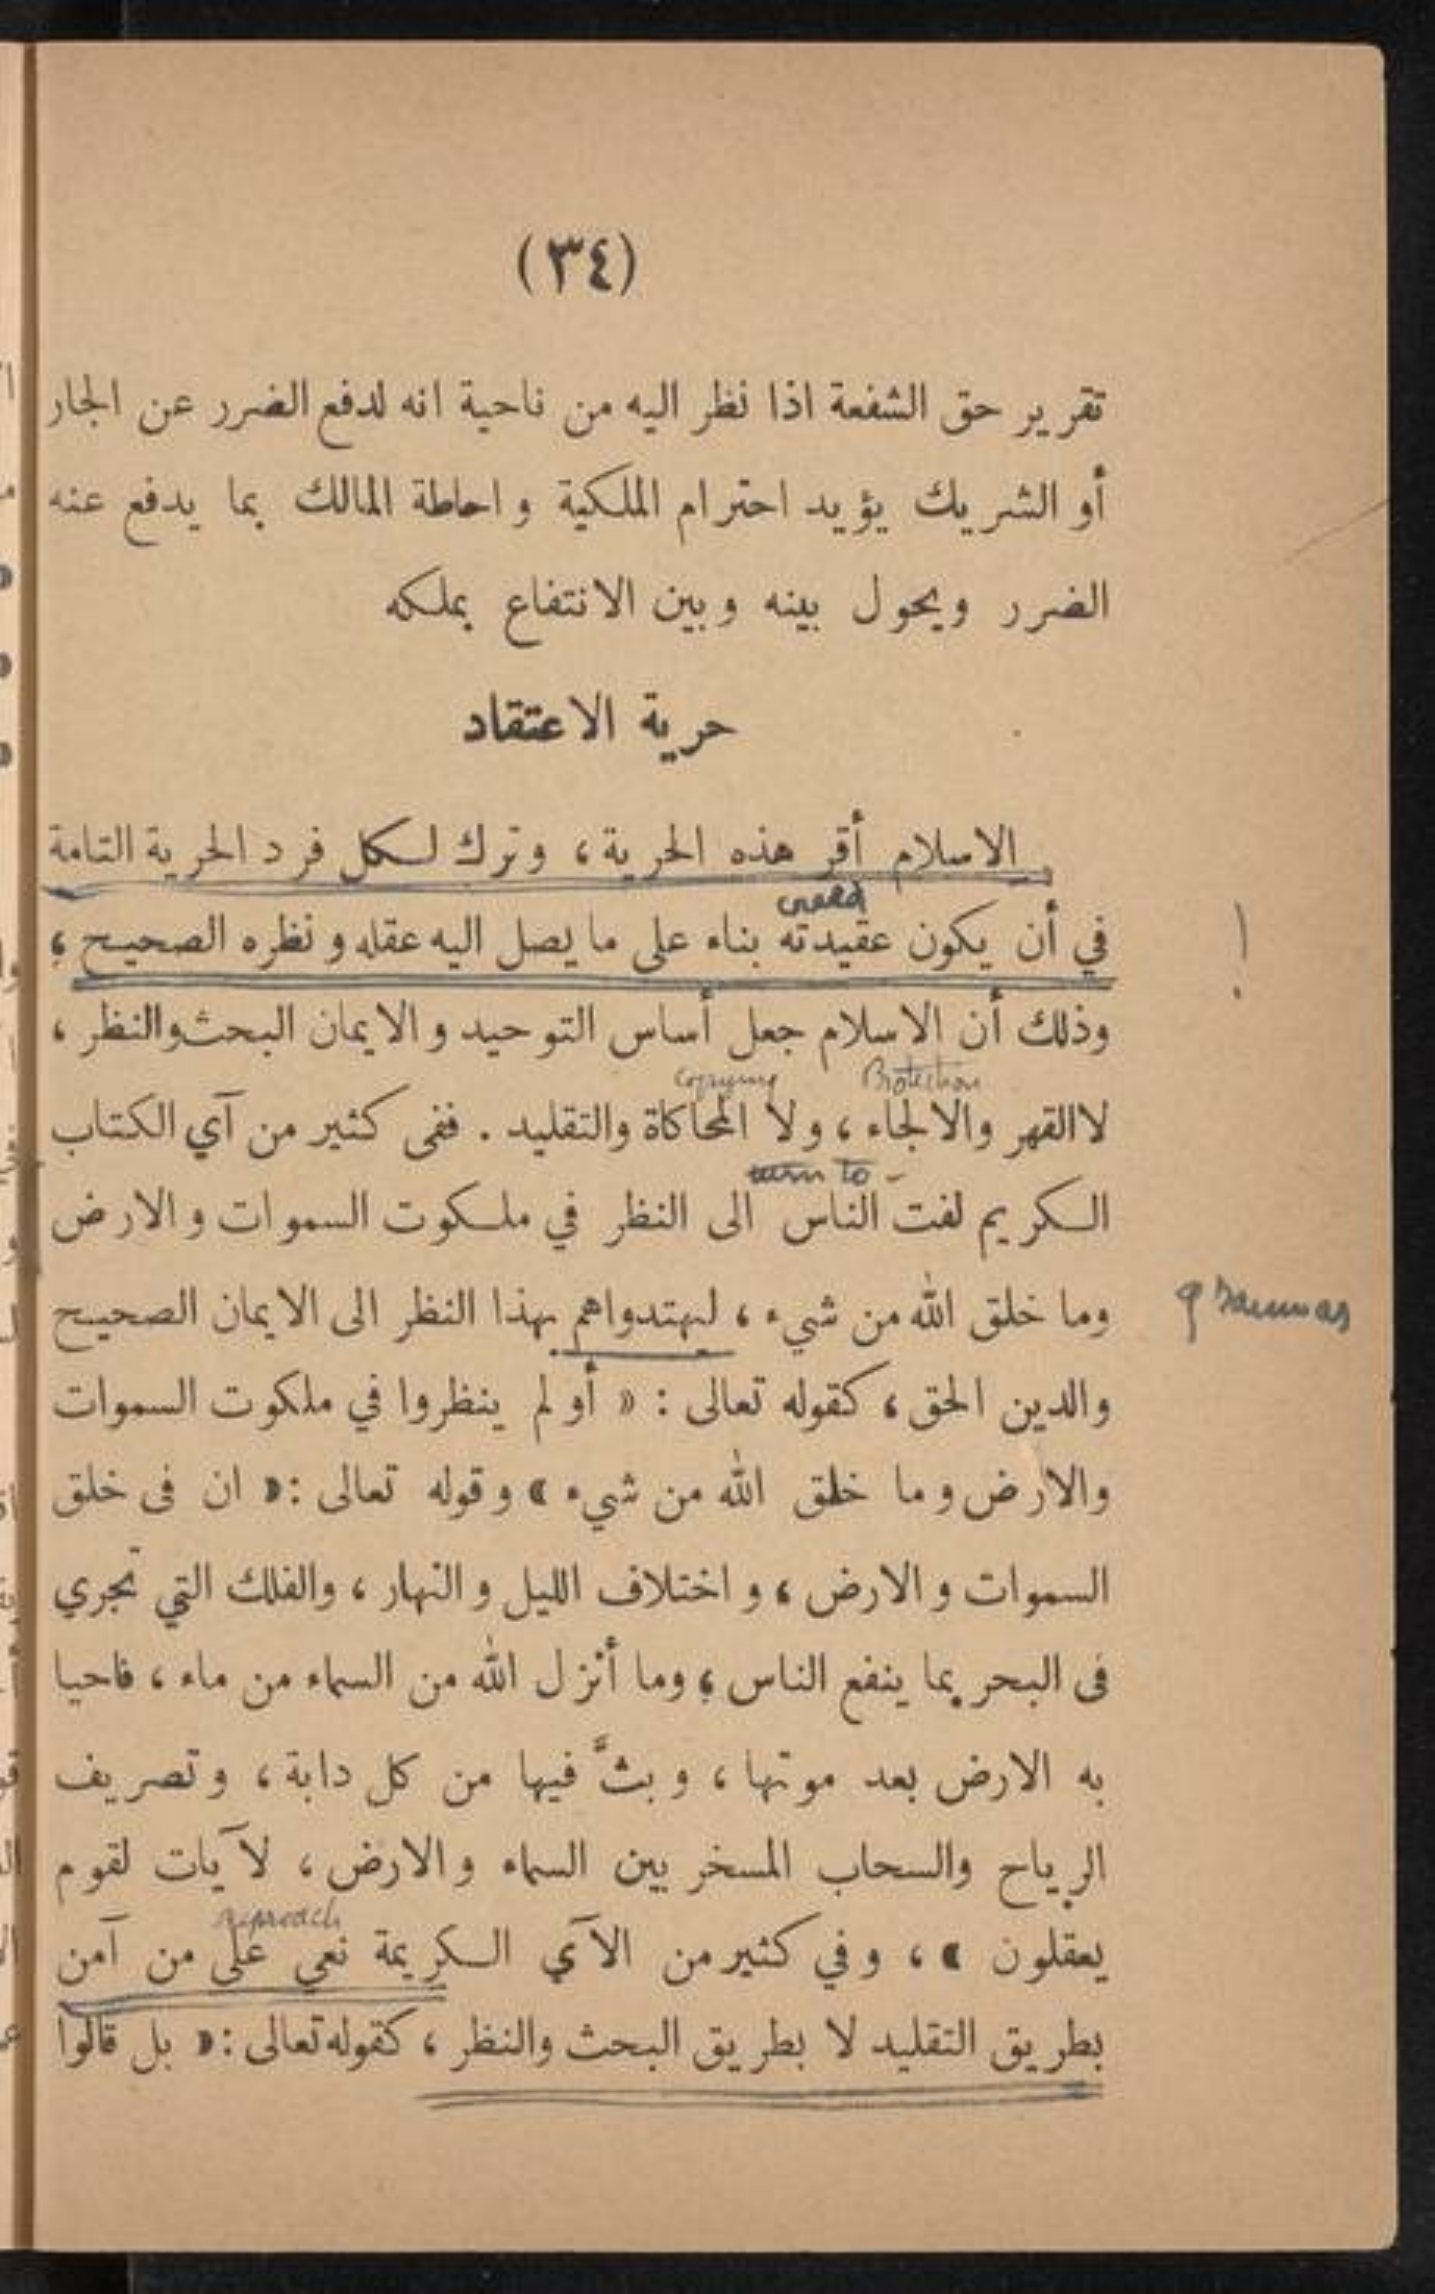 (٣٤)
تقرير حق الشفعة اذا نظر اليه من ناحية انه لدفع الضرر عن الجار
أو الشريك يؤيد احترام الملكية واحاطة المالك بما يدفع عنه
الضرر ويحول بينه وبين الانتفاع بملكه
حرية الاعتقاد
الاسلام أقر هذه الحرية ، وترك لكل فرد الحرية التامة
creed
في أن يكون عقيدته بناء على ما يصل اليه عقله ونظره الصحيح ،
!
وذلك أن الاسلام جعل أساس التوحيد والايمان البحث والنظر ،
copying Protection
لا القهر والالجاء ، ولا المحاكاة والتقليد . ففى كثير من آي الكتاب
turn to -
الكريم لفت الناس الى النظر في ملكوت السموات والارض
وما خلق الله من شيء ، ليهتدواهم بهذا النظر الى الايمان الصحيح
والدين الحق ، كقوله تعالى : « أو لم ينظروا في ملكوت السموات
والارض وما خلق الله من شيء » وقوله تعالى : « ان فى خلق
السموات والارض ، واختلاف الليل والنهار ، والفلك التي تجري
فى البحر بما ينفع الناس ، وما أنزل الله من السماء من ماء ، فاحيا
به الارض بعد موتها ، وبثَّ فيها من كل دابة ، وتصريف
الرياح والسحاب المسخر بين السماء والارض ، لآيات لقوم
reproach
يعقلون » ، وفي كثير من الآي الكريمة نعي على من آمن
بطريق التقليد لا بطريق البحث والنظر ، كقوله تعالى : « بل قالوا